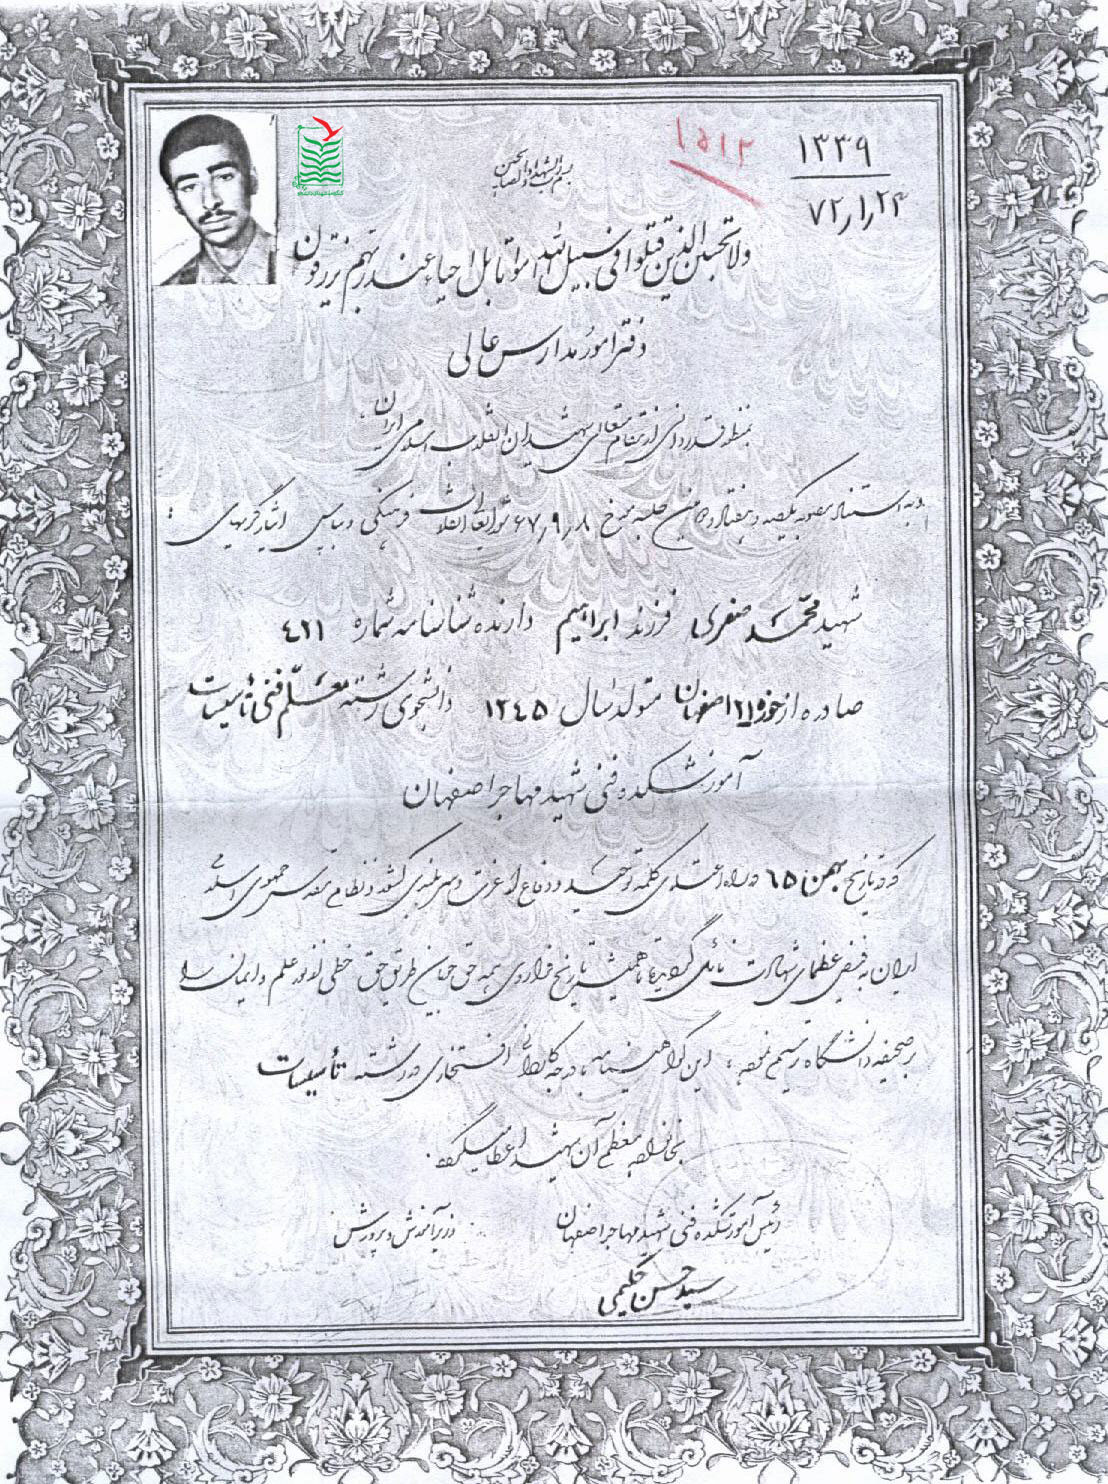 ۱۳۳۹
۷۲٫۱٫۲۴
۱۵۱۲
بسم رب الشهداء و الصالحین
ولا تحسبن الذین قتلوا فی سبیل الله امواتا بل احیاء عند ربهم یرزقون
دفتر امور مدارس عالی
بمنظور قدردانی از مقام متعالی شهیدان انقلاب اسلامی ایران
و به استناد مصوبه یکصد و هفتاد و جلسه مورخ ۶۷٫۹٫۸ شورایعالی انقلاب فرهنگی و بپاس ایثارگریهای
شهید محمد صفری فرزند ابراهیم دارنده شناسنامه شماره ٤٢١
صادره از اصفهان متولد سال ١٣٤٥ دانشجوی رشته معلم فنی تأسیسات
آموزشکده فنی شهید مهاجر اصفهان
که در تاریخ بهمن ٦٥ در راه اعتلای کلمه توحید و دفاع از عزت و سربلندی کشور و نظام مقدس جمهوری اسلامی
ایران به فیض عظمای شهادت نائل گردید تا همیشه تاریخ فراروی همه حق جویان طریق حق خطی از نور علم و ایمان را
بر صحیفه دانشگاه ترسیم نمود، این گواهینامه با درجه کاردانی افتخاری در رشته تأسیسات
بخانواده معظم آن شهید اعطا میگردد.
رئیس آموزشکده فنی شهید مهاجر اصفهان
وزیر آموزش و پرورش
سید حسن حکیمی